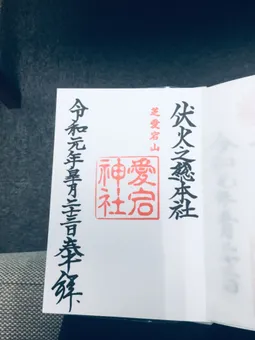 伏火之総本社
芝愛宕山
愛宕
神社
令和元年皐月二十三日奉拝